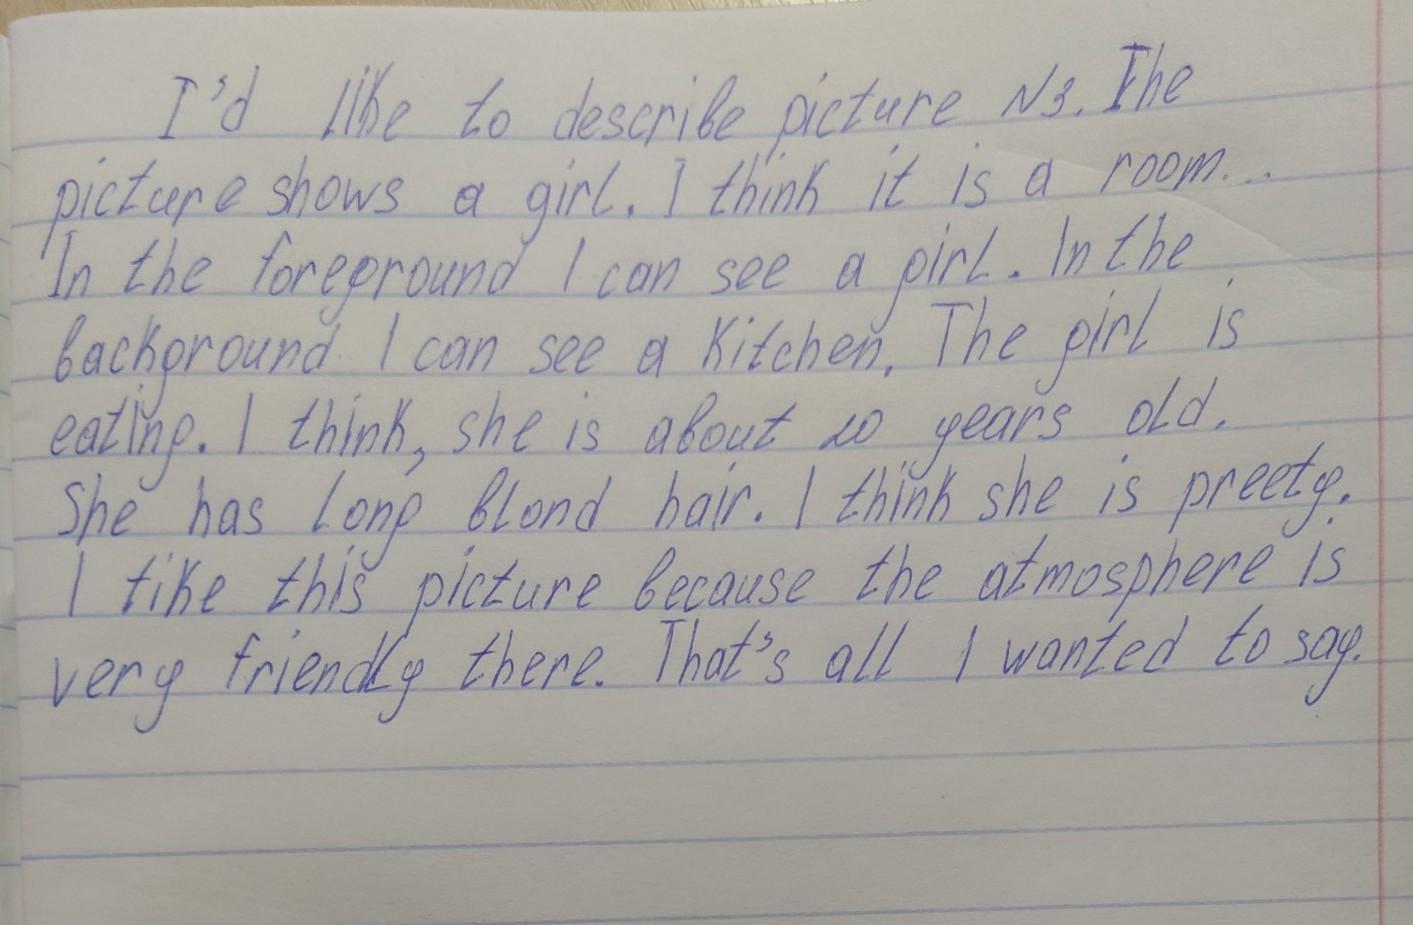 I'd like to describe picture N3. The
picture shows a girl. I think it is a room...
In the foreground I can see a girl. In the
background I can see a kitchen. The girl is
eating. I think, she is about 10 years old.
She has long blond hair. I think she is preety.
I tike this picture because the atmosphere is
very friendly there. That's all I wanted to say.